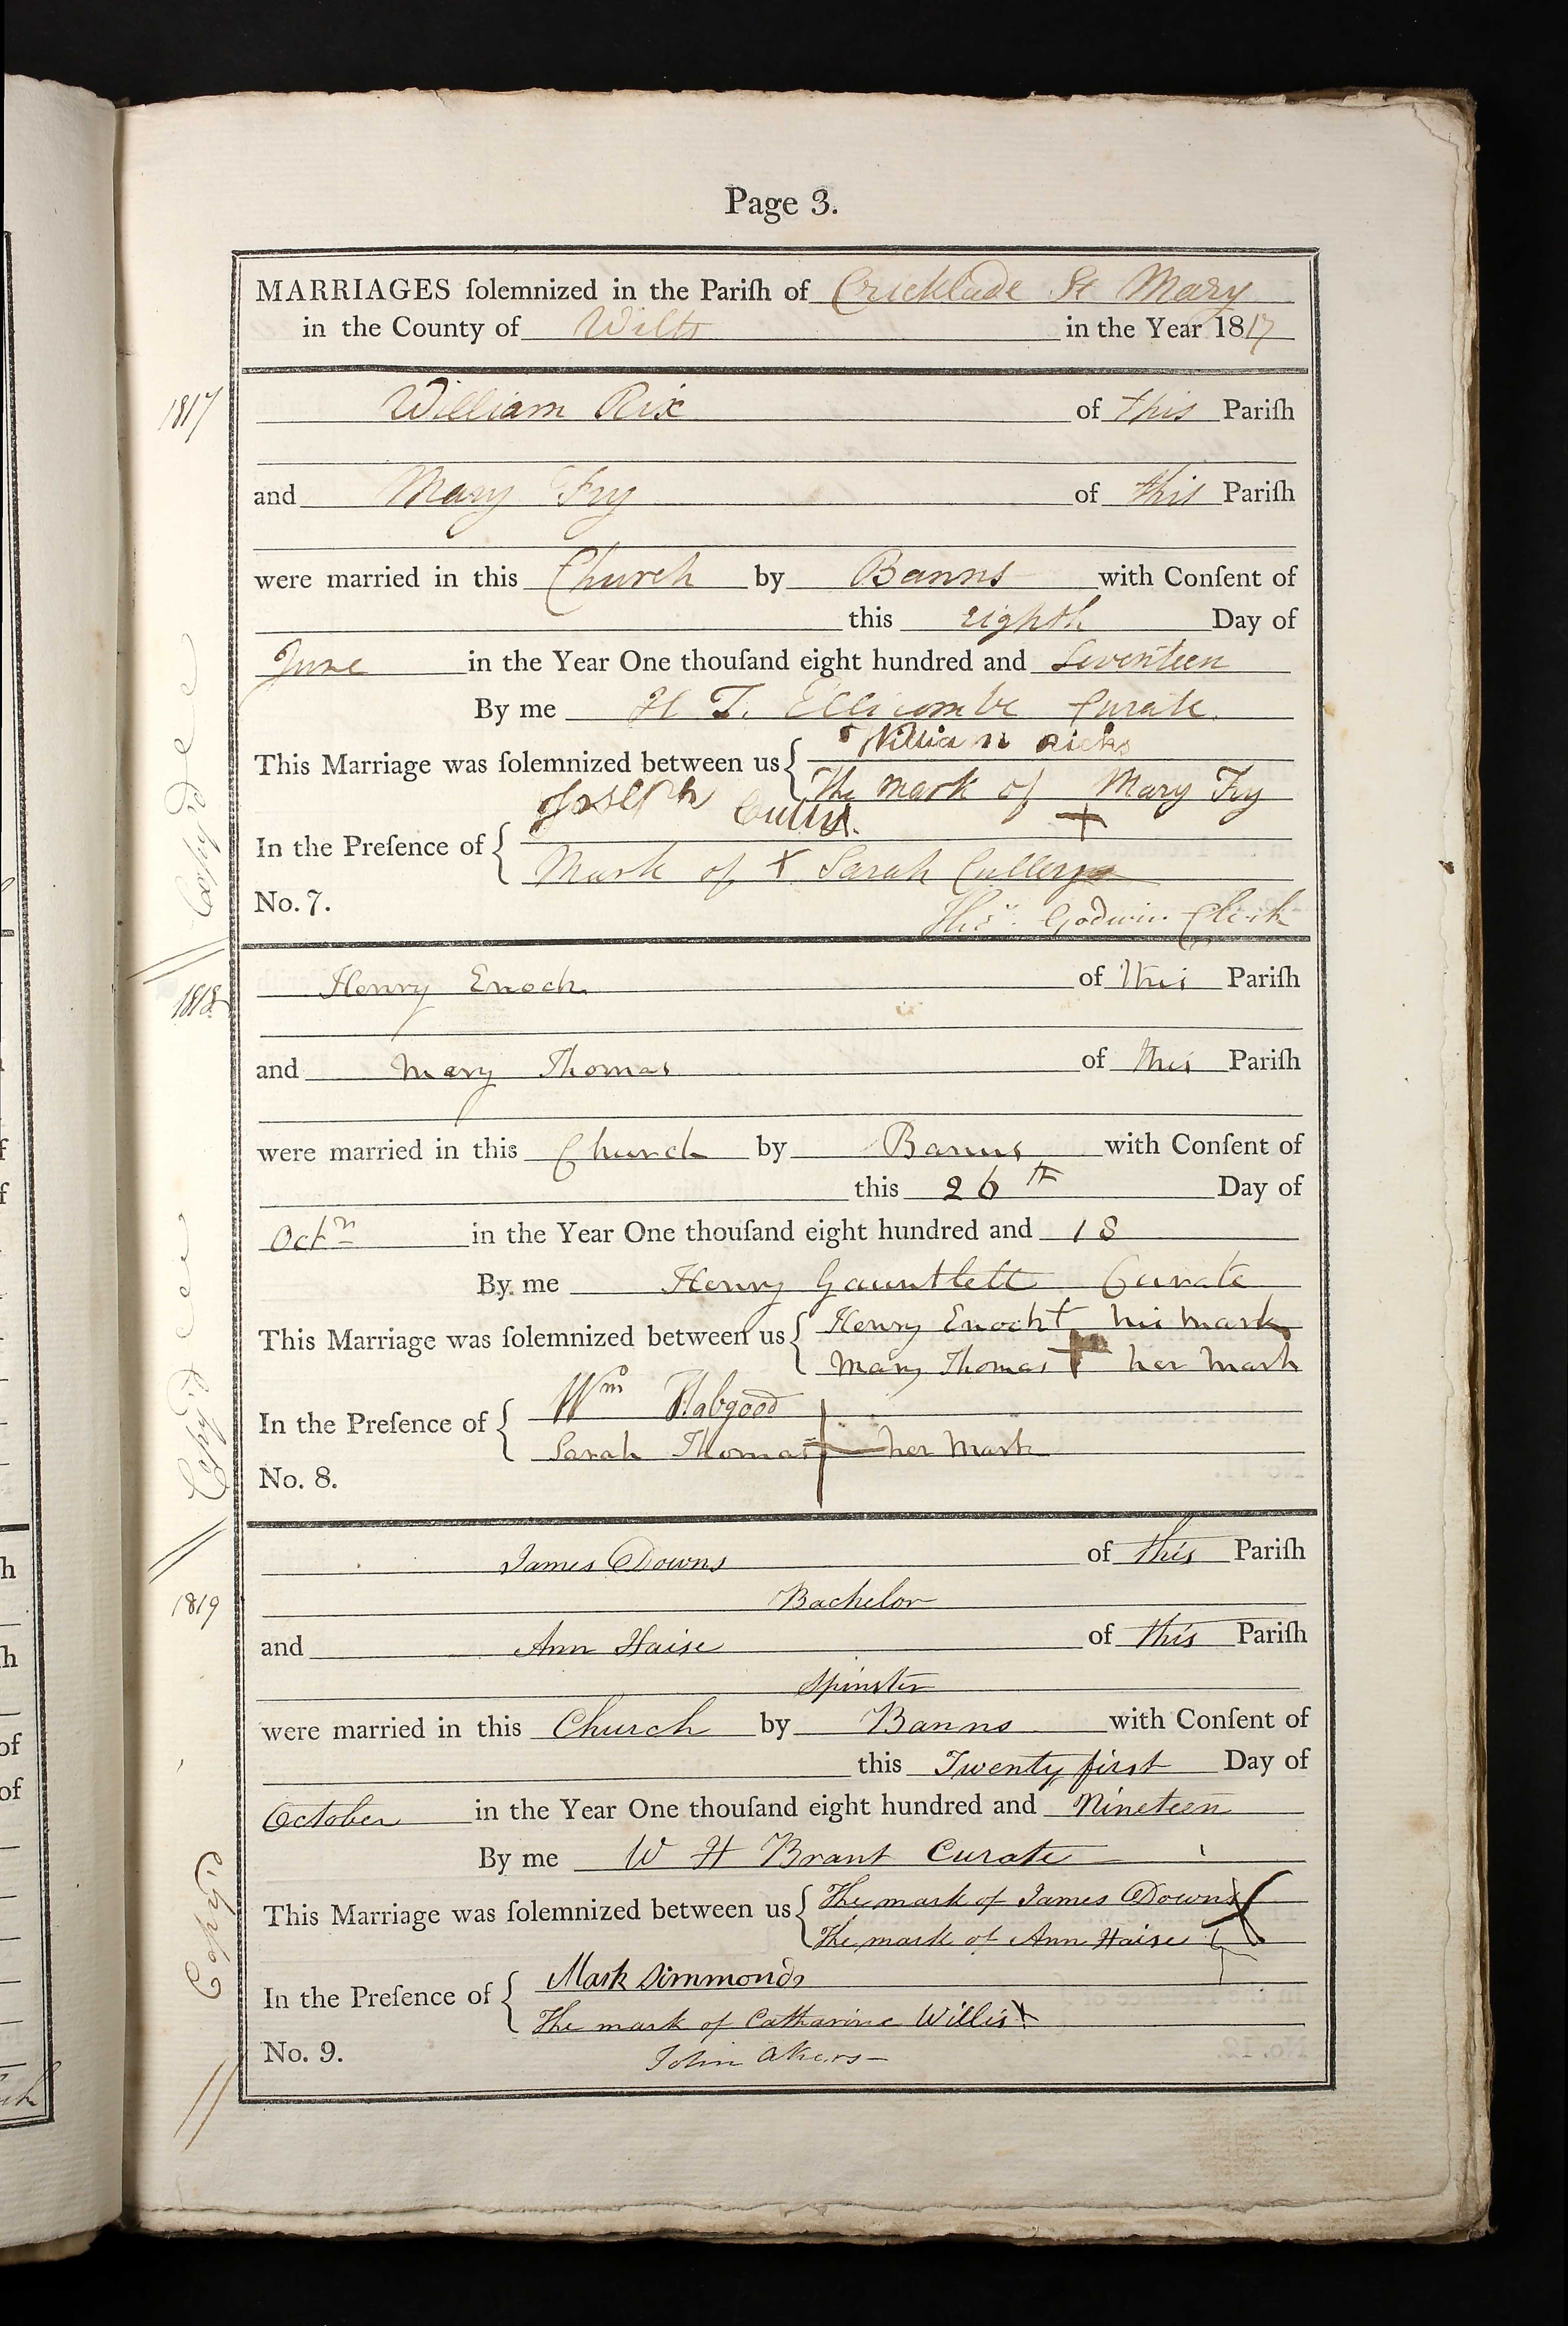 Page 3.
MARRIAGES ſolemnized in the Pariſh of Cricklade St Mary
in the County of Wilts in the Year 1817
1817
William Rix of this Pariſh
and Mary Fry of this Pariſh
were married in this Church by Banns with Conſent of
this eighth Day of
June in the Year One thouſand eight hundred and Seventeen
By me H T. Ellicombe Curate.
This Marriage was ſolemnized between us { William Ricks
The mark of Mary Fry
+
Joseph
In the Preſence of {
Mark of + Sarah
No. 7.
Thos. Godwin Clerk
Copied
1818
Henry Enoch of this Pariſh
and Mary Thomas of this Pariſh
were married in this Church by Banns with Conſent of
this 26th Day of
Octr in the Year One thouſand eight hundred and 18
By me Henry Gauntlett Curate
This Marriage was ſolemnized between us { Henry Enoch + his mark
Mary Thomas + her mark
In the Preſence of { Wm Habgood
Sarah Thomas + her mark
No. 8.
Copied
1819
James Downs of this Pariſh
Bachelor
and Ann Haise of this Pariſh
Spinster
were married in this Church by Banns with Conſent of
this Twenty first Day of
October in the Year One thouſand eight hundred and Nineteen
By me W H Brant Curate
This Marriage was ſolemnized between us { The mark of James Downs X
The mark of Ann Haise +
In the Preſence of { Mark Simmonds
The mark of Catharine Willis X
No. 9. John Akers
Copd